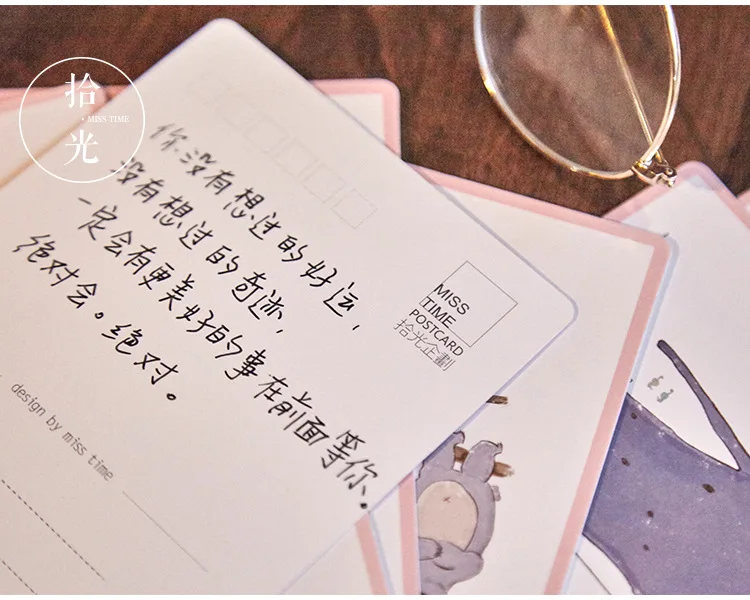 拾光
MISS TIME
你没有想过的好运，
没有想过的奇迹，
一定会有更美好的事在前面等你.
绝对会。绝对。
MISS
TIME
POSTCARD
拾光企劃
design by miss time